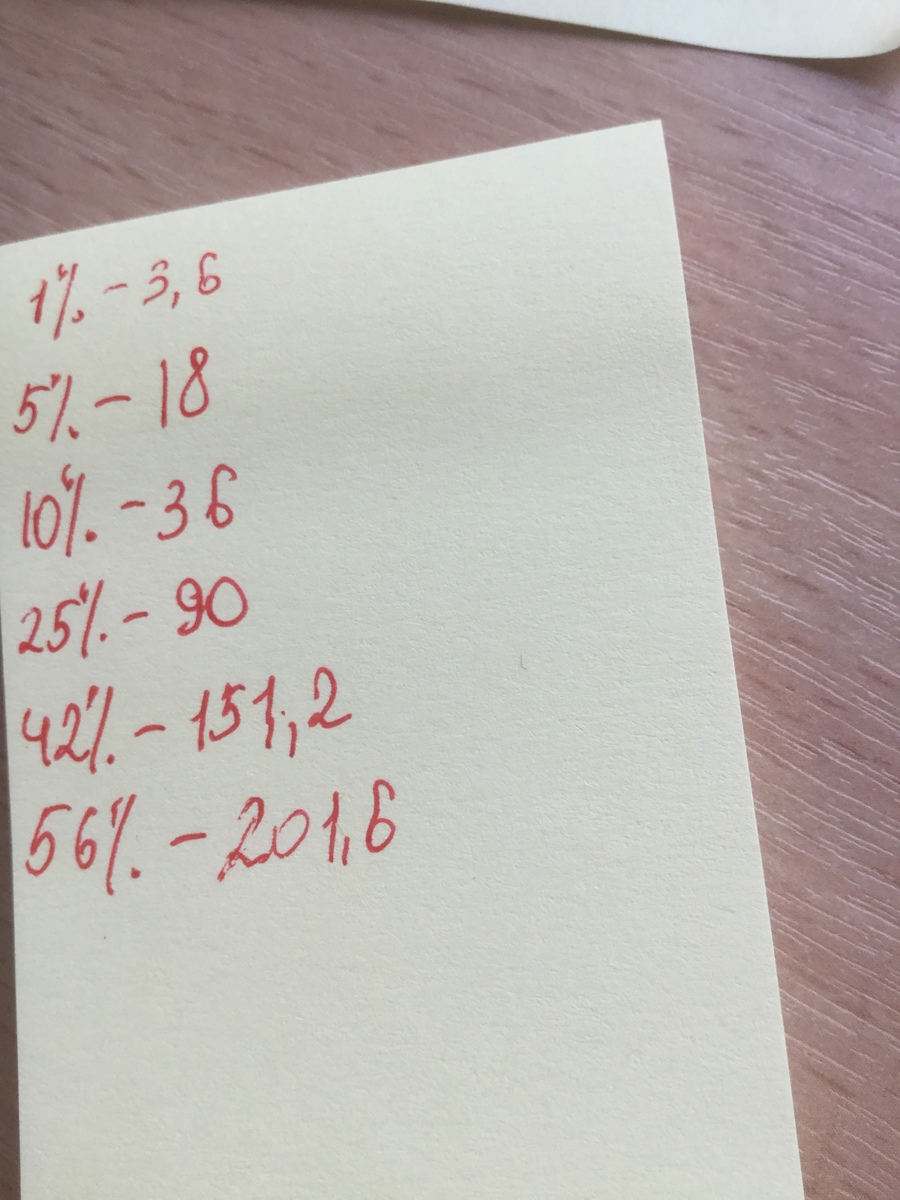 1% - 3,6
5% - 18
10% - 36
25% - 90
42% - 151,2
56% - 201,6